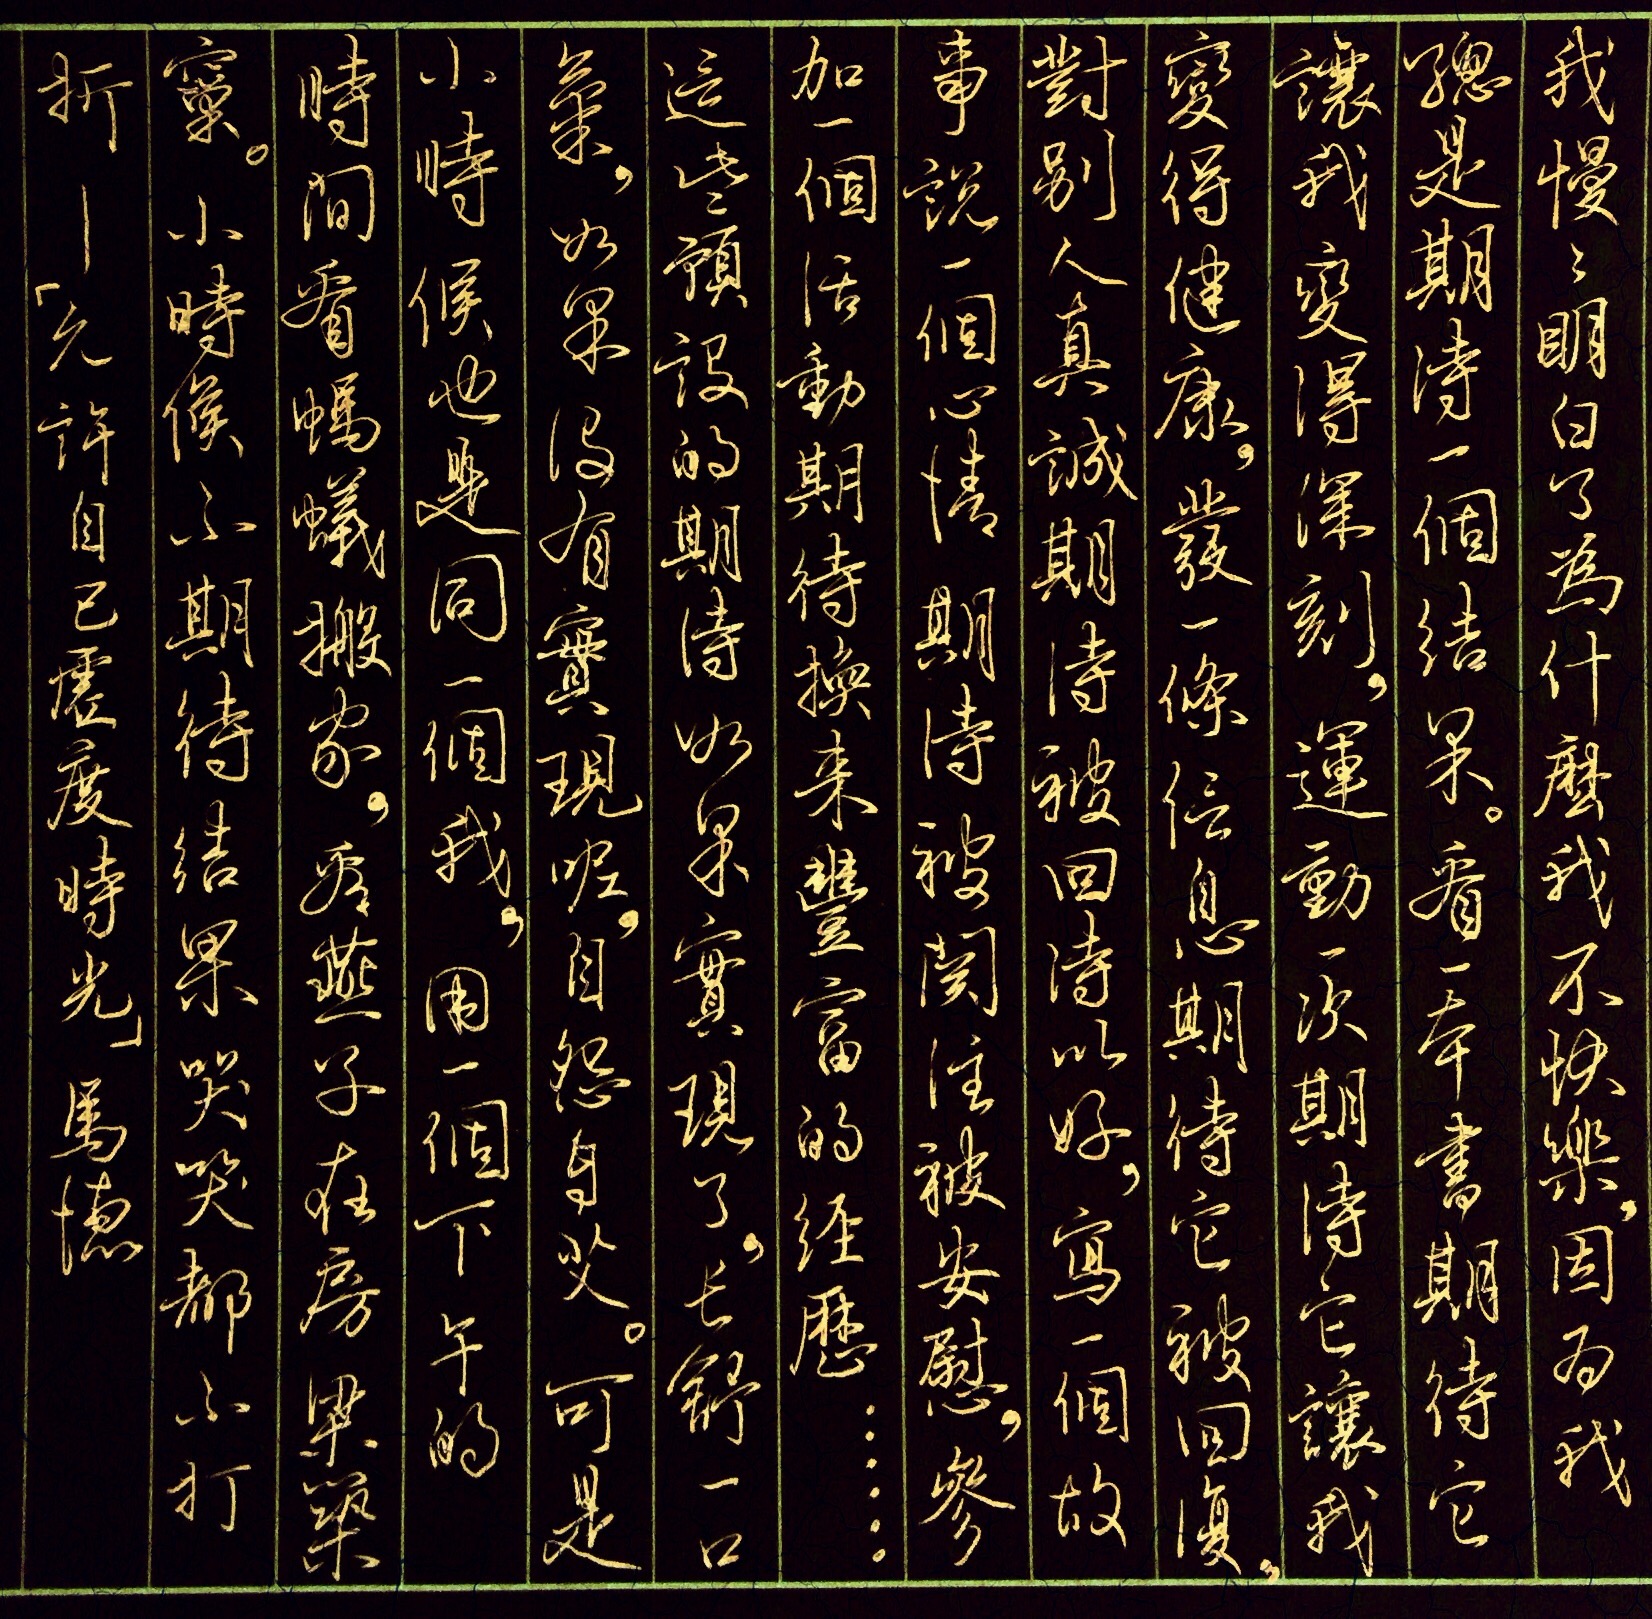 我慢〻明白了為什麼我不快樂，因为我
總是期待一個结果。看一本書期待它
讓我变得深刻，運動一次期待它讓我
變得健康，發一條信息期待它被回復，
對别人真誠期待被回待以好，寫一個故
事説一個心情期待被関注被安慰，參
加一個活動期待換来豐富的经歷……
這些預設的期待如果實現了，长舒一口
氣，如果没有實現呢，自怨自艾。可是
小時候也是同一個我，用一個下午的
時间看螞蟻搬家，看燕子在房梁築
窠。小時候不期待结果哭笑都不打
折—「允許自己虛度時光」馬德